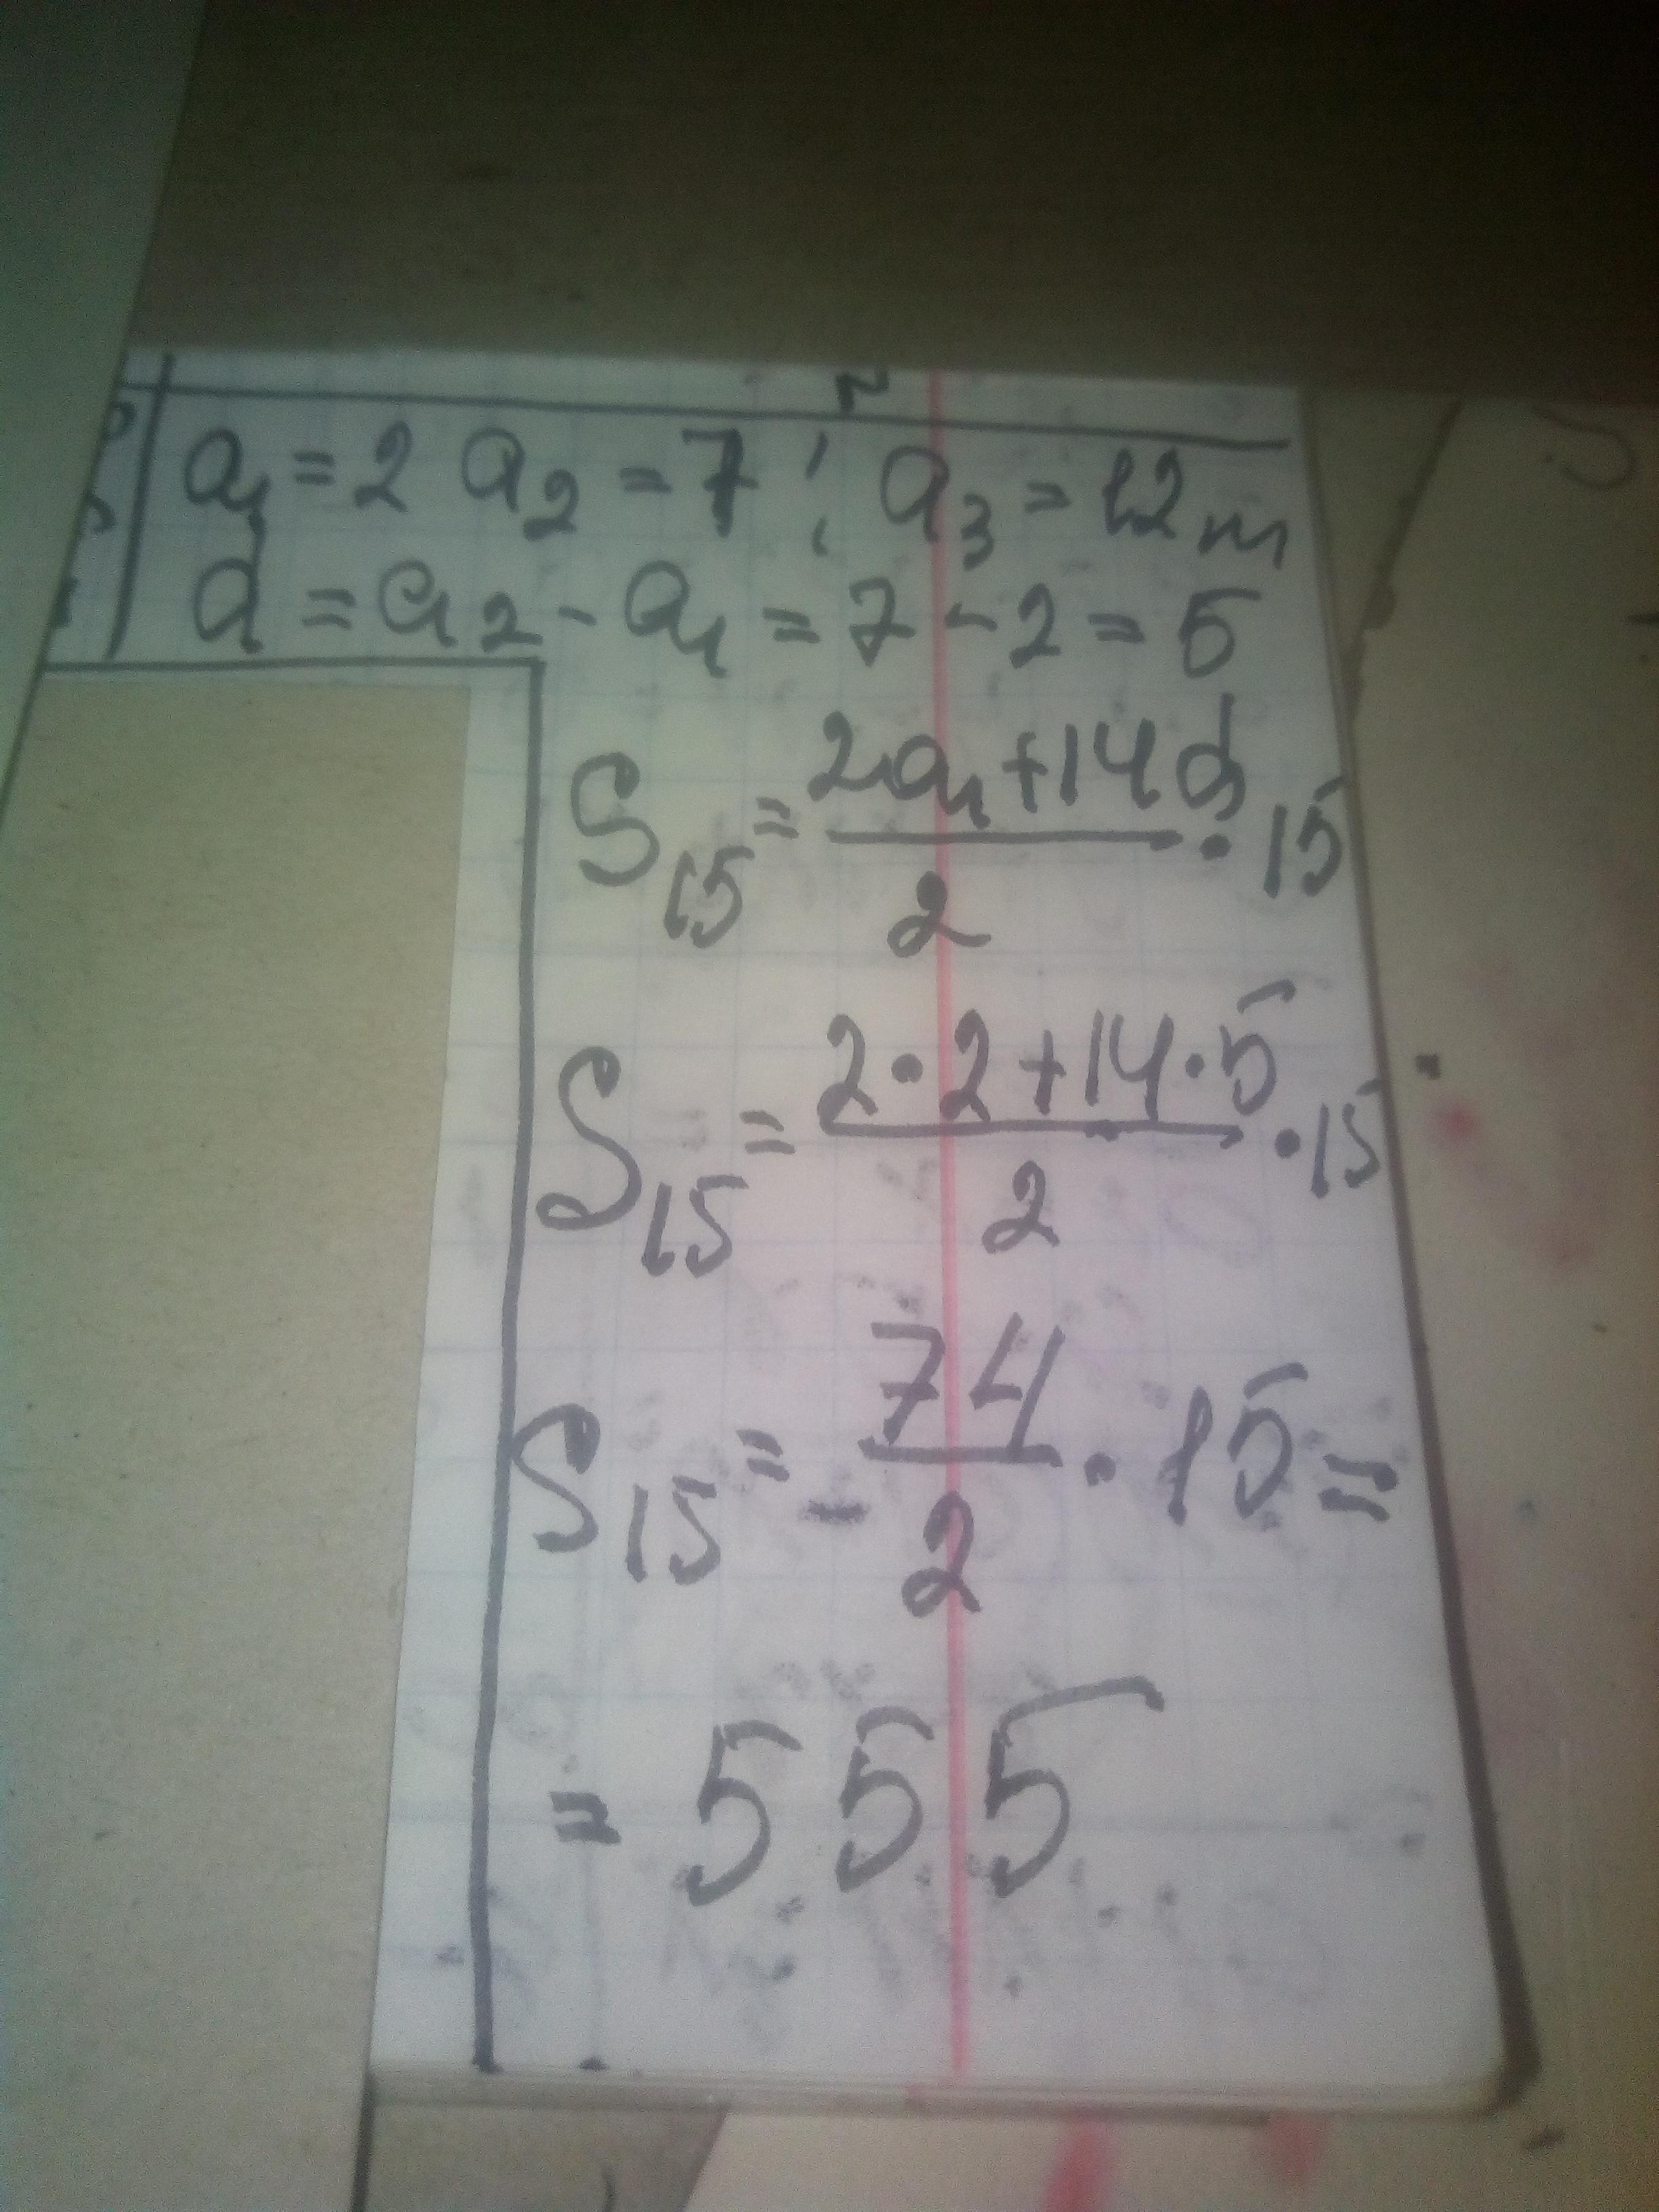 a₁ = 2 a₂ = 7 ; a₃ = 12 m
d = a₂ - a₁ = 7 - 2 = 5
S₁₅ = (2a₁ + 14d)/2 · 15
S₁₅ = (2·2 + 14·5)/2 · 15
S₁₅ = 74/2 · 15 =
= 555